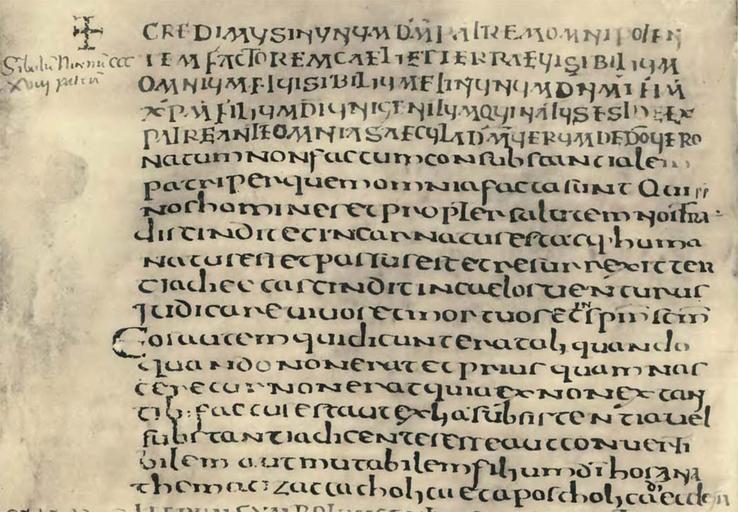 CREDIMUS IN UNUM DM PATREM OMNIPOTEN
TEM FACTOREM CAELI ET TERRAE UISIBILIUM
OMNIUM ET INUISIBILIUM ET IN UNUM DNM IHM
XPM FILIUM DI UNIGENITUM QUI NATUS EST DE EX
PATRE ANTE OMNIA SAECULA DM UERUM DE DO UERO
natum non factum consubstantialem
patri per quem omnia facta sunt Qui pp
nos homines et propter salutem nostra
discindit et incarnatus est atq huma
natus est et passus est et resurrexit ter
tia die ascindit in caelos uenturus
judicare uiuos et mortuos et in spm scm
Eos autem qui dicunt erat aliquando
quando non erat et prius quam nas
ceretur non erat quia ex non extan
tib: factus est aut ex alia subsistentia uel
substantia dicentes esse aut conuerti
bilem aut mutabilem filium di hos ana
themaizat catholica et apostholica di eccle